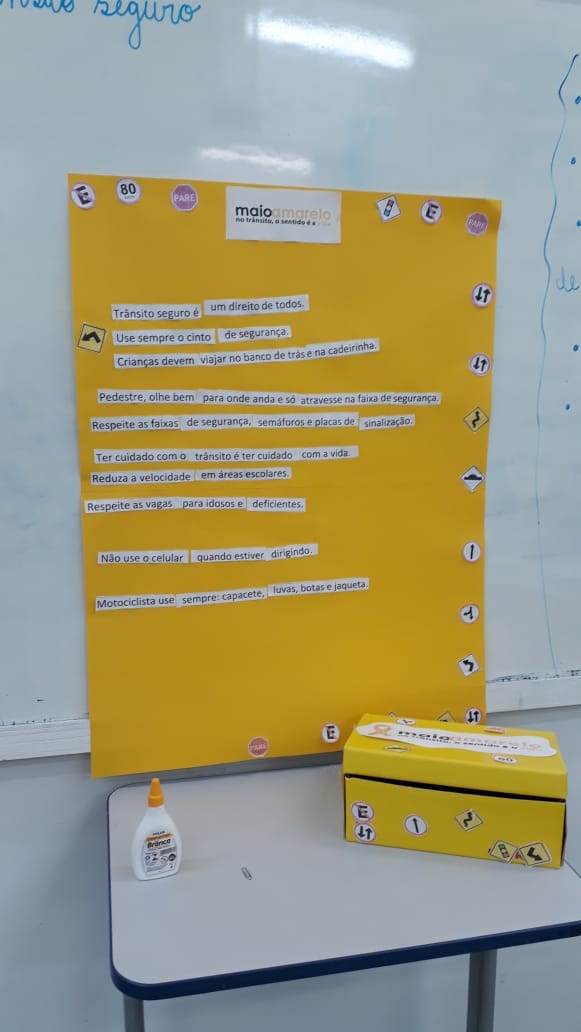 seguro
E
80
PARE
maioamarelo
no trânsito, o sentido é a vida
E
PARE
Trânsito seguro é um direito de todos.
Use sempre o cinto de segurança.
Crianças devem viajar no banco de trás e na cadeirinha.
Pedestre, olhe bem para onde anda e só atravesse na faixa de segurança.
Respeite as faixas de segurança, semáforos e placas de sinalização.
Ter cuidado com o trânsito é ter cuidado com a vida.
Reduza a velocidade em áreas escolares.
Respeite as vagas para idosos e deficientes.
Não use o celular quando estiver dirigindo.
Motociclista use sempre: capacete, luvas, botas e jaqueta.
de
PARE
E
maioamarelo
no trânsito, o sentido é a vida
E
Branca